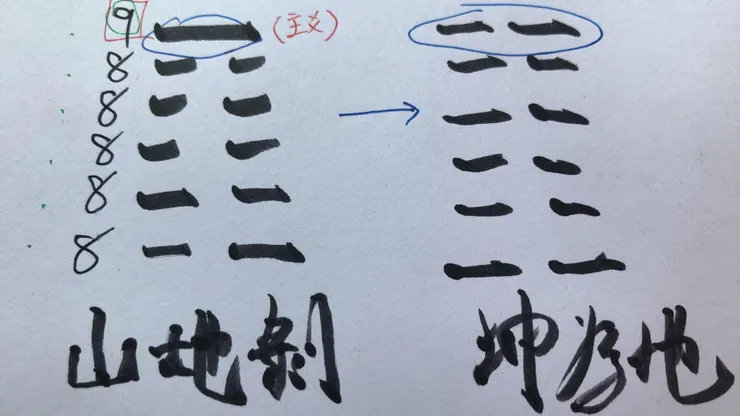 9 (主爻)
8
8
8
8
8
山地剝 坤为地